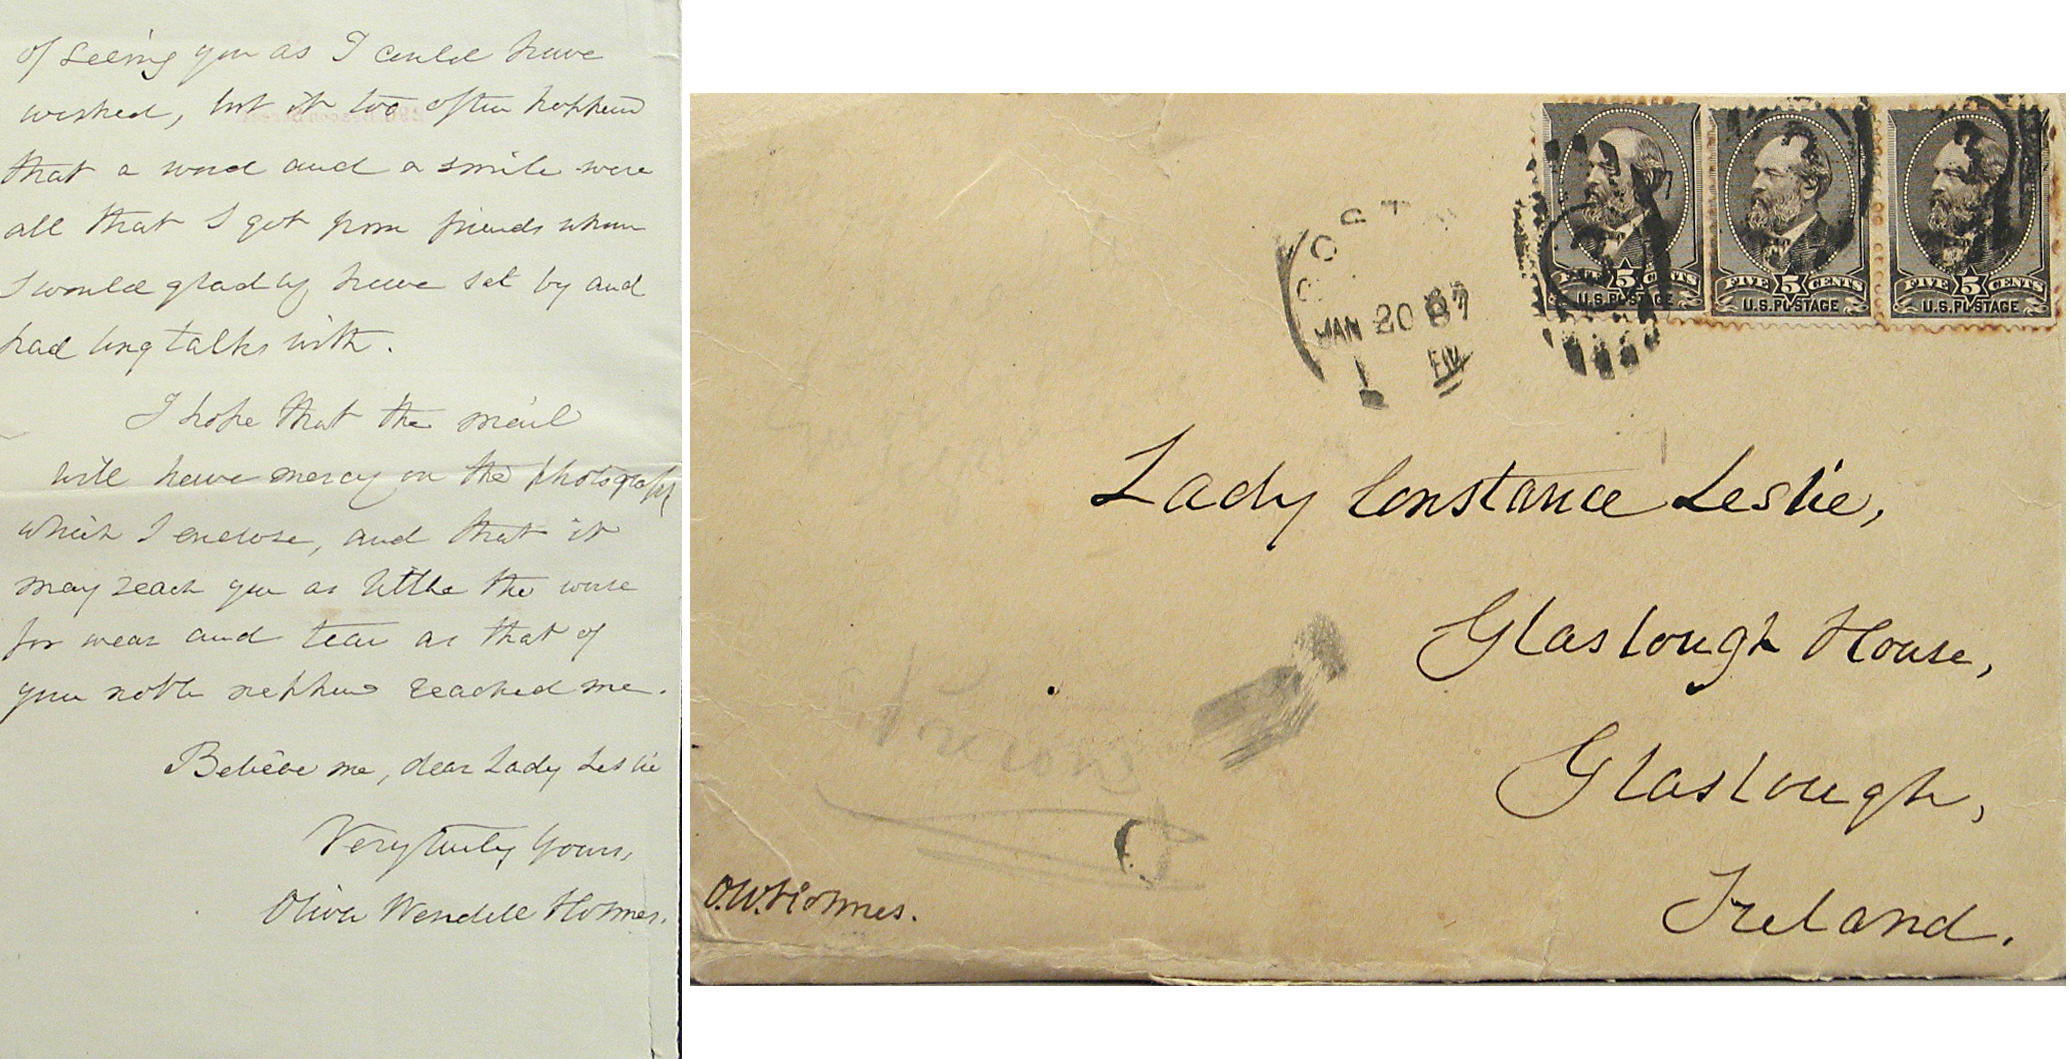 of seeing you as I could have
wished, but it too often happened
that a word and a smile were
all that I got from friends whom
I would gladly have sat by and
had long talks with.
I hope that the mail
will have mercy on the photograph
which I enclose, and that it
may reach you as little the worse
for wear and tear as that of
your noble nephew reached me.
Believe me, dear Lady Leslie
Very truly Yours,
Oliver Wendell Holmes.
JAN 20 87
1 PM
FIVE 5 CENTS
U.S. POSTAGE
FIVE 5 CENTS
U.S. POSTAGE
FIVE 5 CENTS
U.S. POSTAGE
Lady Constance Leslie,
Glaslough House,
Glaslough,
Ireland.
O.W. Holmes.